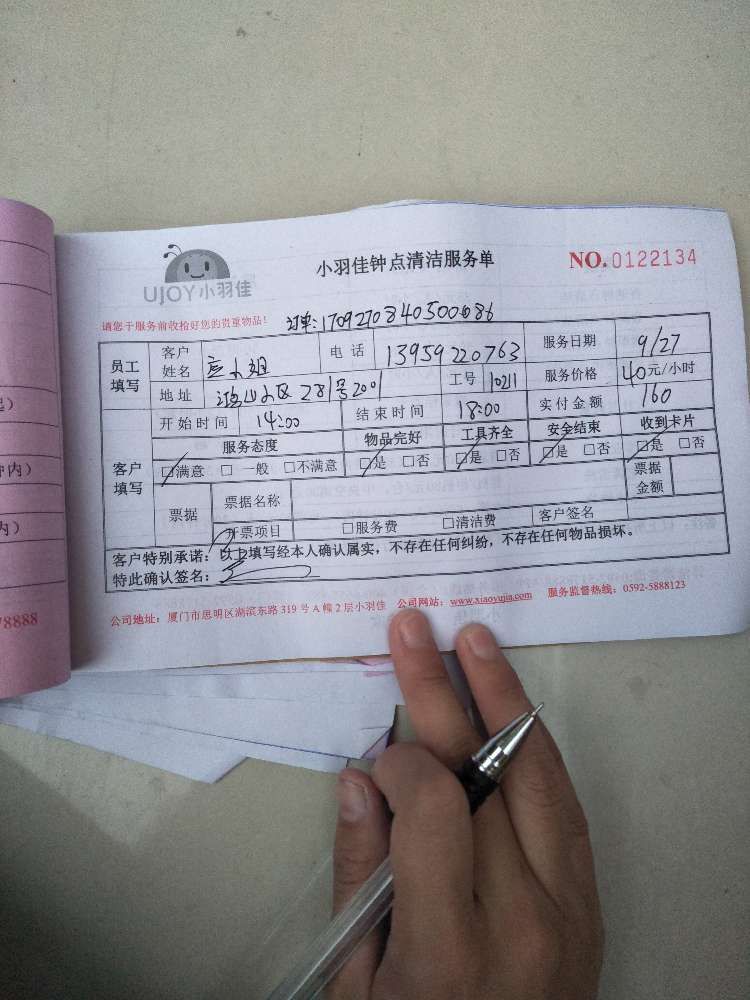 UJOY小羽佳
小羽佳钟点清洁服务单
NO.0122134
请您于服务前收拾好您的贵重物品!
订单:170927084050086
员工填写 客户姓名 小姐 电话 13959220763 服务日期 9/27
地址 区281号2001 工号 10211 服务价格 40元/小时
客户填写 开始时间 14:00 结束时间 18:00 实付金额 160
服务态度 物品完好 工具齐全 安全结束 收到卡片
☑满意 □一般 □不满意 ☑是 □否 ☑是 □否 ☑是 □否 ☑是 □否
票据 票据名称 票据金额
开票项目 □服务费 □清洁费 客户签名
客户特别承诺:以上填写经本人确认属实,不存在任何纠纷,不存在任何物品损坏。
特此确认签名:
公司地址:厦门市思明区湖滨东路319号A幢2层小羽佳 公司网站:www.xiaoyujia.com 服务监督热线:0592-5888123
钟内)
内)
8888